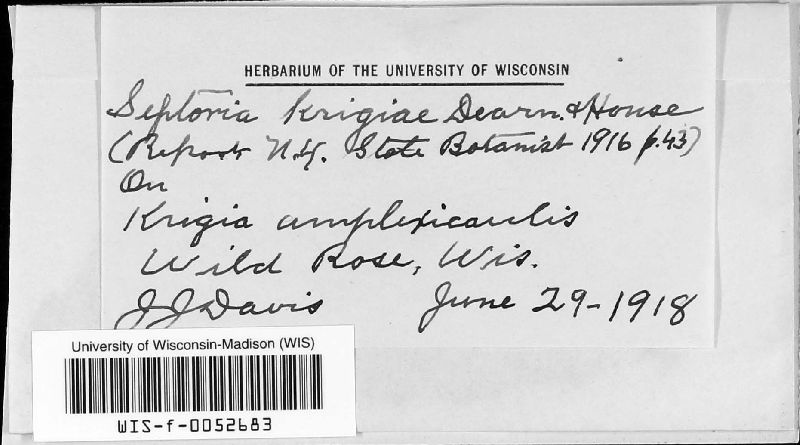 HERBARIUM OF THE UNIVERSITY OF WISCONSIN
Septoria Krigiae Dearn. & House
(Report N.Y. State Botanist 1916 p.43)
On
Krigia amplexicaulis
Wild Rose, Wis.
JJDavis June 29-1918
University of Wisconsin-Madison (WIS)
WIS-f-0052683